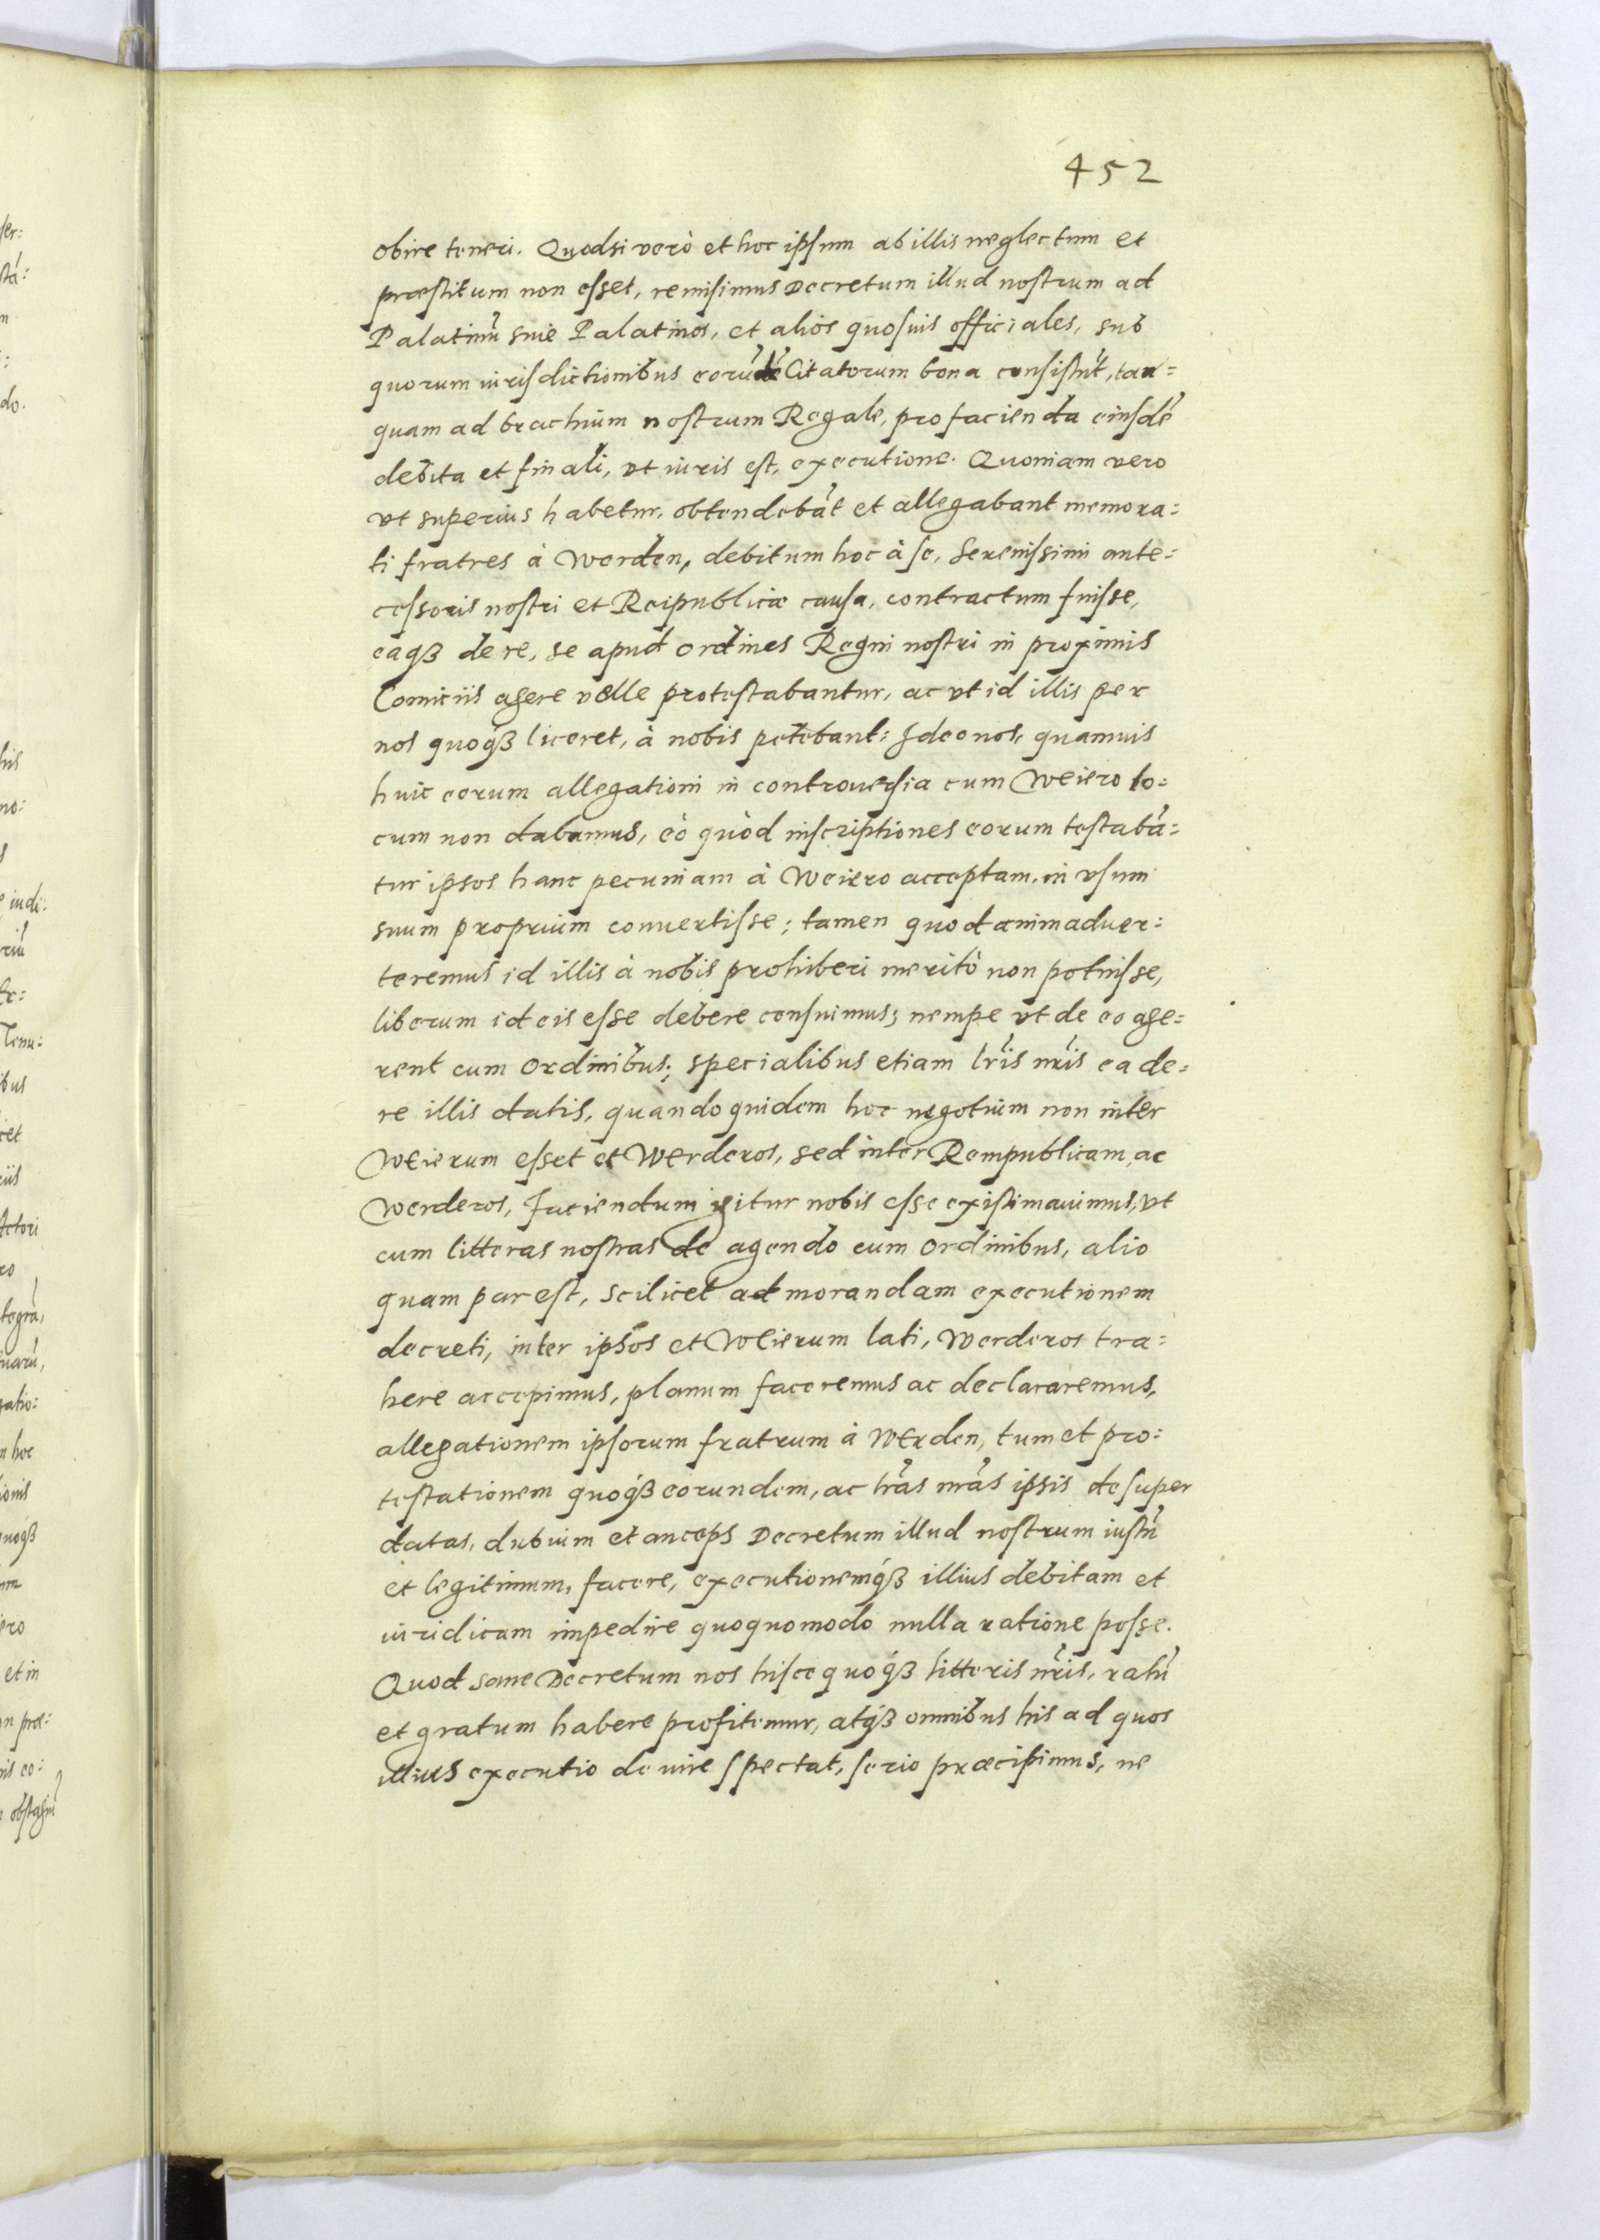 452
obire teneri. Quodsi verò et hoc ipsum ab illis neglectum et
præstitum non esset, remisimus Decretum illud nostrum ad
Palatinũ siue Palatinos, et alios quosuis officiales, sub
quorum iurisdictionibus eorũdẽ Citatorum bona consistũt, tan=
quam ad brachium nostrum Regale, pro facienda eiusdẽ
debita et finali, vt iuris est, executione. Quoniam vero
vt superius habetur, obtendebãt et allegabant memora=
ti fratres à Werden, debitum hoc à se, Serenissimi ante=
cessoris nostri et Reipublicæ causa, contractum fuisse,
eaqȝ de re, se apud ordines Regni nostri in proximis
Comitiis agere velle protestabantur, ac vt id illis per
nos quoqȝ liceret, à nobis petebant: Ideo nos, quamuis
huic eorum allegationi in controuersia cum Weiero lo=
cum non dabamus, eò quòd inscriptiones eorum testabã=
tur ipsos hanc pecuniam à Weiero acceptam, in vsum
suum proprium conuertisse; tamen quod animaduer=
teremus id illis à nobis prohiberi meritò non potuisse,
liberum id eis esse debere censuimus; nempe vt de eo age=
rent cum Ordinibus; specialibus etiam lr̃is nr̃is ea de=
re illis datis, quandoquidem hoc negotium non inter
Weierum esset et Werderos, sed inter Rempublicam, ac
Werderos, Faciendum igitur nobis esse existimauimus, vt
cum litteras nostras de agendo cum Ordinibus, alio
quam par est, scilicet ad morandam executionem
decreti, inter ipsos et Weierum lati, Werderos tra=
here accepimus, planum faceremus ac declararemus,
allegationem ipsorum fratrum à Werden, tum et pro=
testationem quoqȝ eorundem, ac lr̃as nr̃as ipsis desuper
datas, dubium et anceps Decretum illud nostrum iustũ
et legitimum, facere, executionemqȝ illius debitam et
iuridicam impedire quoquomodo nulla ratione posse.
Quod sane Decretum nos hisce quoqȝ litteris nr̃is, ratũ
et gratum habere profitemur, atqȝ omnibus his ad quos
illius executio de iure spectat, serio præcipimus, ne